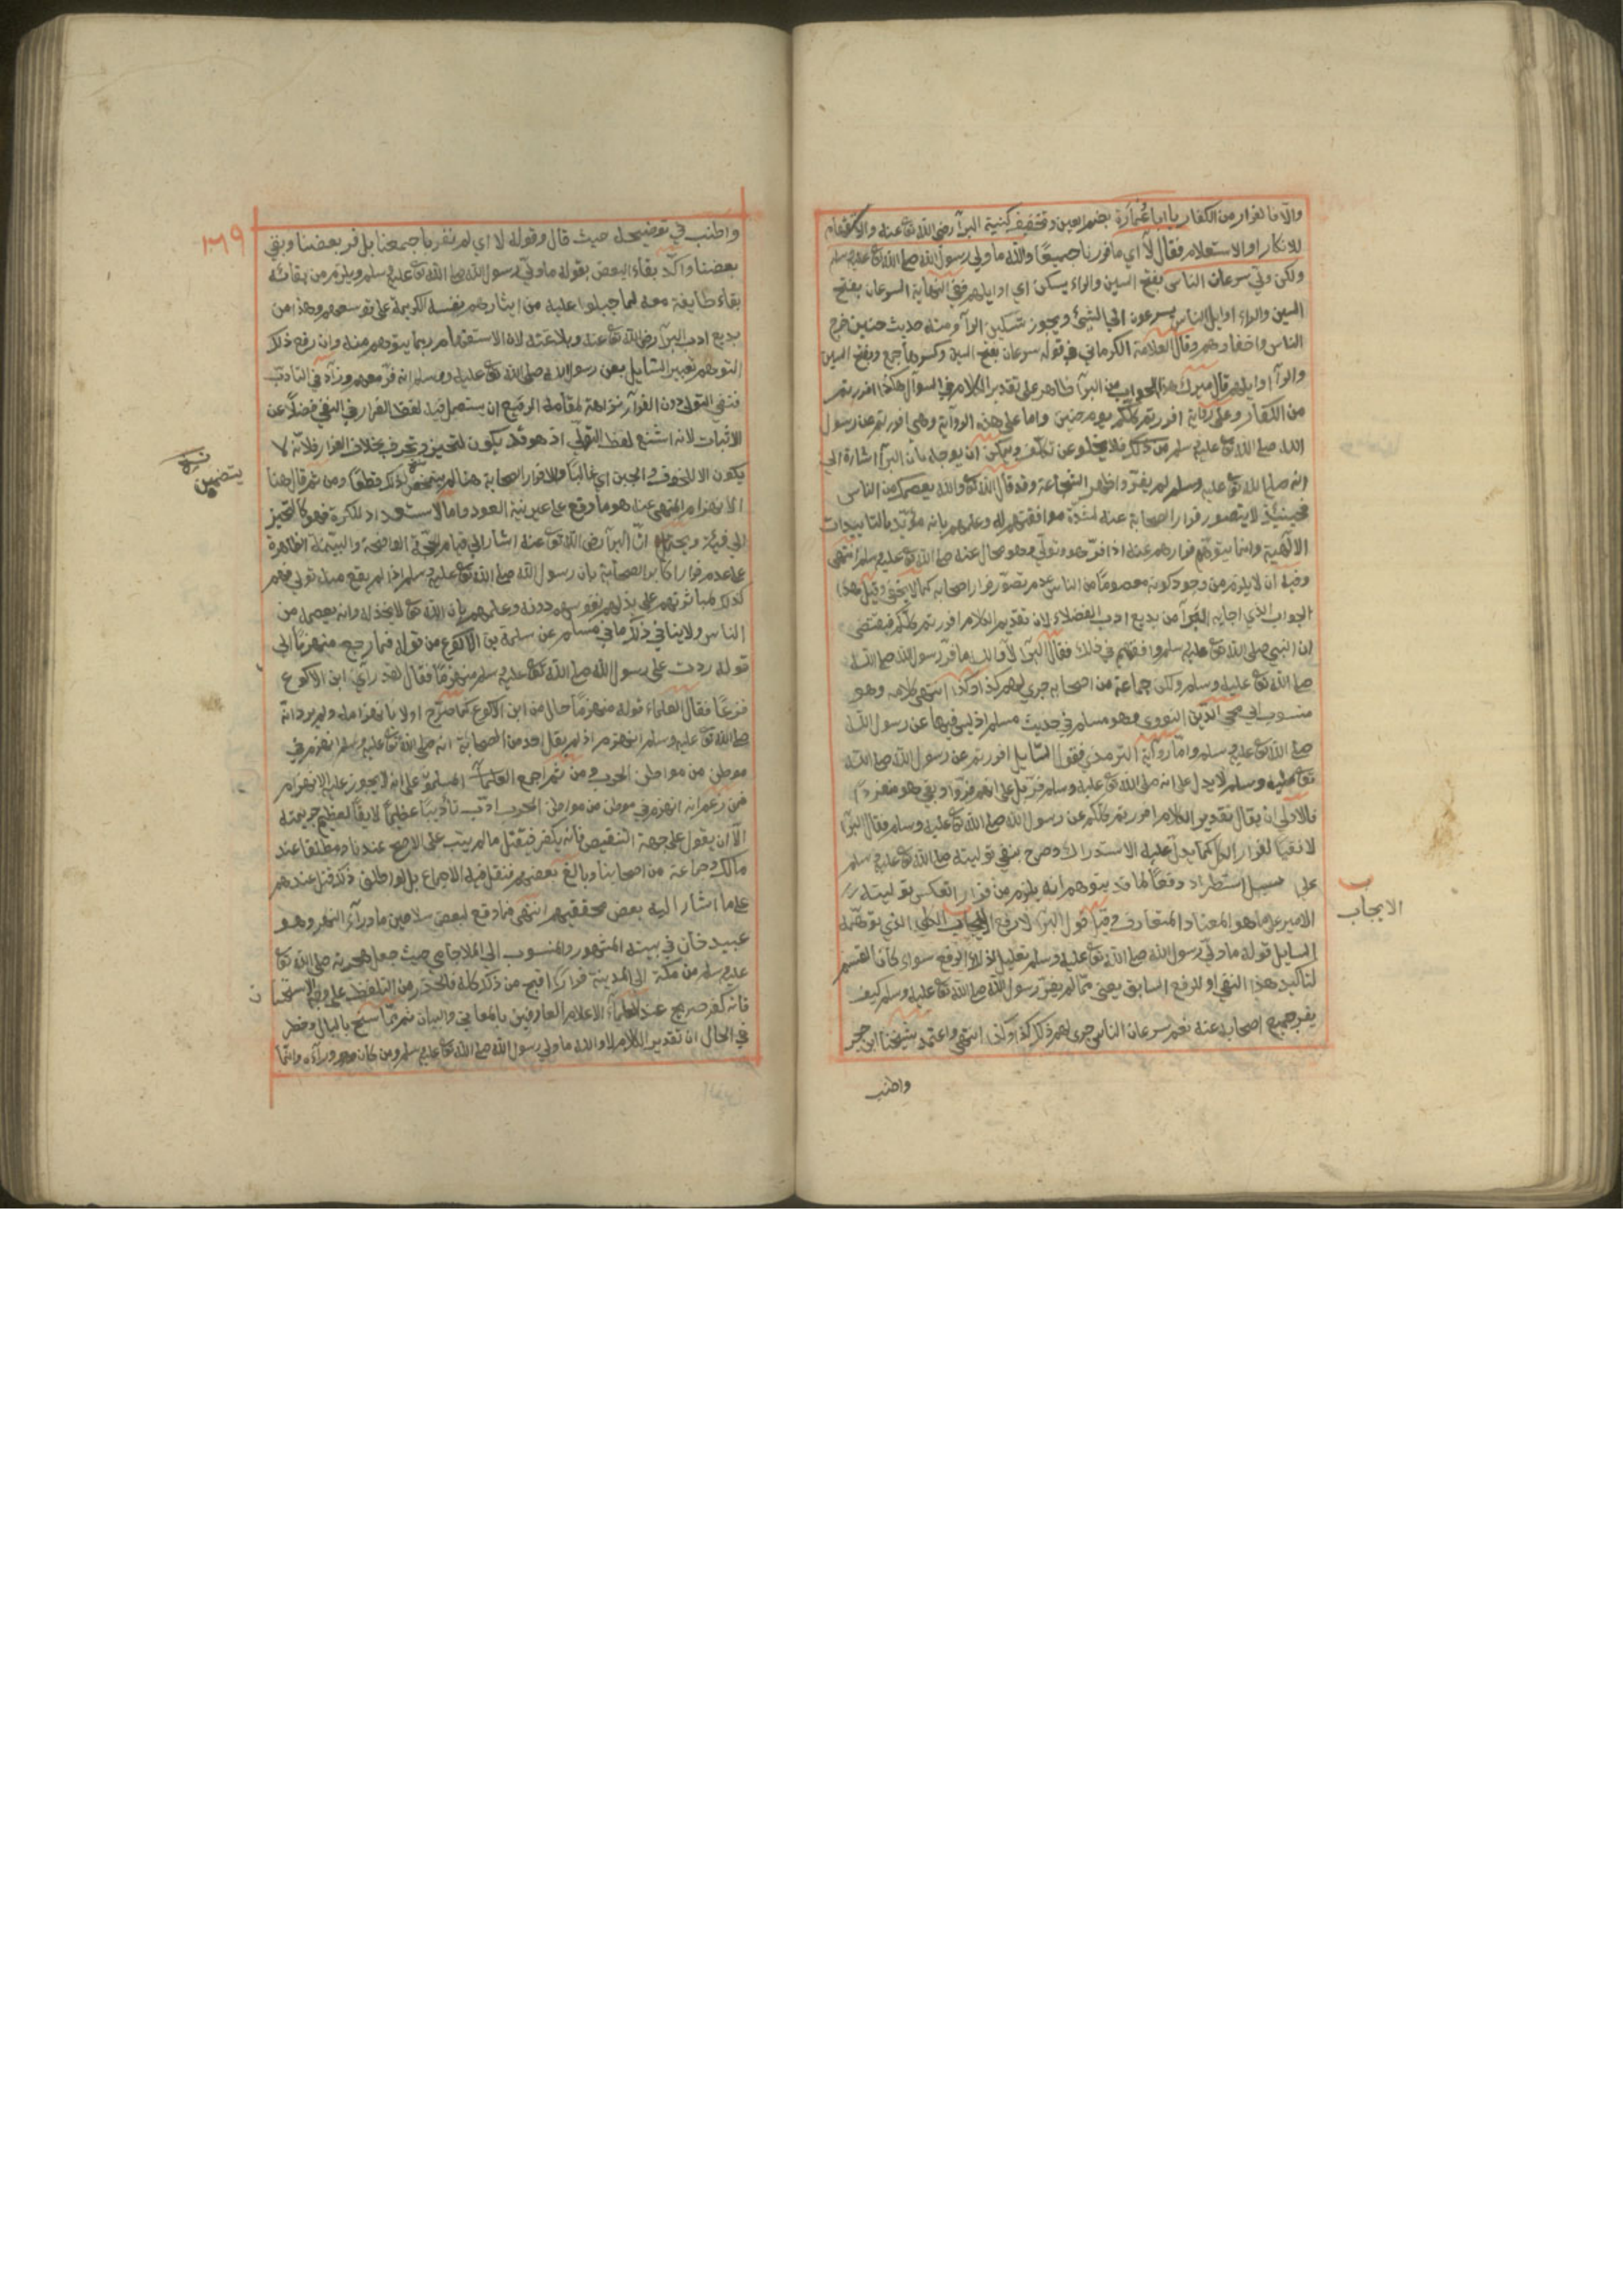 والا فالفرار من الكفار يا ابا عُمَارَة بضم العين وتخفيف كنية البرآ رضى الله تع عنه والاستفهام
للانكار او الاستعلام فقال لا اي ما فررنا جميعًا والله ما ولى رسول الله صلى الله تع عليه وسلم
ولكن ولّى سرعان الناس بفتح السين والراء يسكن اي اوايلهم ففى النهاية السرعان بفتح
السين والراء اوايل الناس يسرعون الى الشئ ويجوز تسكين الرآ ومنه حديث حنين خرج
الناس واخفاؤهم وقال العلامة الكرماني في قوله سرعان بفتح السين وكسرها جمع وبفتح السين
والرآ اوايلهم قال ميرك هذا الجواب من البرآ ظاهر على تقدير الكلام في السؤال هكذا افررتم
من الكفار وعلى رواية افررتم كلكم يوم حنين واما على هذه الرواية وهى افررتم عن رسول
الله صلى الله تع عليه وسلم من ذلك فلا يخلو عن تكلف ويمكن ان يوجه بان البرآ اشارة الى
انه صلى الله تع عليه وسلم لم يفر واظهر الشجاعة وقد قال الله تع والله يعصمك من الناس
فحينئذ لا يتصور فرار الصحابة عنه لشدة موافقتهم له وعلمهم بانه مؤيد بالتاييدات
الالهية وانما يتوهم فرارهم عنه اذا فرّ هو وتولّى وهو محال عنه صلى الله تع عليه وسلم انتهى
وفيه ان لا يلزم من وجود كونه معصومًا من الناس عدم تصوّر فرار اصحابه كما لا يخفى وقيل هذا
الجواب الذي اجابه البرآ من بديع ادب الفضلاء لان تقدير الكلام افررتم كلكم فيقتضى
ان النبى صلى الله تع عليه وسلم وافقهم فى ذلك فقال البرآ لا والله ما فرّ رسول الله صلى الله
صلى الله تع عليه وسلم ولكن جماعة من اصحابه جرى لهم كذا وكذا انتهى كلامه وهو
منسوب الى محى الدين النووى وهو مسلم فى حديث مسلم اذ ليس فيها عن رسول الله
صلى الله تع عليه وسلم واما رواية الترمذى فقول السايل افررتم عن رسول الله صلى الله
تع عليه وسلم لا يدل على انه صلى الله تع عليه وسلم فرّ بل على انهم فرّوا وبقى هو منفردًا
فالاولى ان يقال تقدير الكلام افررتم كلكم عن رسول الله صلى الله تع عليه وسلم فقال البرآ
لا نفيا لفرار الكل كما يدل عليه الاستدراك وصرح بنفى توليته صلى الله تع عليه وسلم
على سبيل استطراد دفعًا لما قد يتوهم انه يلزم من فرار العسكر توليته
الامير على ما هو المعتاد المتعارف قول البرآ لا رفع الايجاب الكلى الذي توهمه
السايل قوله ما ولى رسول الله صلى الله تع عليه وسلم تعليل لذلك الرفع سواء كان القسم
لتاكيد هذا النفى او للرفع السابق يعنى مما لم يفرّ رسول الله صلى الله تع عليه وسلم كيف
يفر جميع اصحابه عنه نعم سرعان الناس جرى لهم ذلك كذا وكذا انتهى واعتمد شيخنا ابن حجر
الايجاب
واطنب
٣٦٩
واطنب في توضيحه حيث قال وقوله لا اي لم نفر باجمعنا بل فر بعضنا وبقي
بعضنا واكّد بقاء البعض بقوله ما ولّى رسول الله صلى الله تع عليه وسلم ويلزم من بقائه
بقاء طايفة معه لما جبلوا عليه من ايثارهم نفسه الكريمة على نفوسهم وهذا من
بديع ادب البرآ رضى الله تع عنه وبلاغته لان الاستفهام ربما يتوهم منه وان رفع ذلك
التوهم تعبير السايل بعن رسول الله صلى الله تع عليه وسلم انه فرّ معهم وزاد في التادب
فنفى التولى دون الفرار نزاهة لمقامه الرفيع ان يستعمل فيه لفظ الفرار في النفى فضلًا عن
الاثبات لانه اشنع لفظ التولّي اذ هو قد يكون لتحيز وتحرف بخلاف الفرار فلانه لا
يكون الا للخوف والجبن اي غالبًا والا فرار الصحابة هنا لم يتمحض لذلك قطعًا ومن ثم قال هنا
الانهزام المنهى عنه هو ما وقع على غير نية العود واما الاستعداد للكرة فهو كالتحيز
الى فئة ويحتمل انّ البرآ رضى الله تع عنه اشار الى قيام الحجة الواضحة والبينة الظاهرة
على عدم فرار اكابر الصحابة بان رسول الله صلى الله تع عليه وسلم اذا لم يقع منه تولى فهم
كذلك لمثابرتهم على بذلهم نفوسهم دونه وعلمهم بان الله تع لا يخذله وانه يعصمه من
الناس ولا ينافي ذلك ما في مسلم عن سلمة بن الاكوع من قوله فارجع منهزمًا الى
قوله مررت على رسول الله صلى الله تع عليه وسلم منهزمًا فقال لقد راى ابن الاكوع
فزعًا فقال العلماء قوله منهزمًا حال من ابن الاكوع كما صرّح اولا بانهزامه ولم يرد انه
صلى الله تع عليه وسلم انهزم اذ لم يقل احد من الصحابة انه صلى الله تع عليه وسلم انهزم في
موطن من مواطن الحرب ومن ثم اجمع العلماء المسلمون على انه لا يجوز عليه الانهزام
فمن زعم انه انهزم في موطن من مواطن الحرب ادّب تأديبًا عظيمًا لايقًا لعظيم جريمته
الا ان يقول على جهة التنقيص فانه يكفر فيقتل ما لم يتب على الاصح عندنا ومطلقا عند
مالك وجماعة من اصحابنا وبالغ بعضهم فنقل فيه الاجماع بل لو اطلق ذلك قتل عندهم
على ما اشار اليه بعض محققيهم انتهى فما وقع لبعض سلاطين ما ورآء النهر وهو
عبيد خان في بيته المشهور والمنسوب الى الملا جامي حيث جعل هجرته صلى الله تع
عليه وسلم من مكة الى المدينة فرارًا اقبح من ذلك كله فالحذر من التلفظ على وجه الاستحسان
فانه كفر صريح عند العلمآء الاعلام العارفين بالمعاني والبيان ثم مما سنح بالبال وخطر
في الحال ان تقدير الكلام لا والله ما ولى رسول الله صلى الله تع عليه وسلم ومن كان معه ورآءه وانما
يتضمن